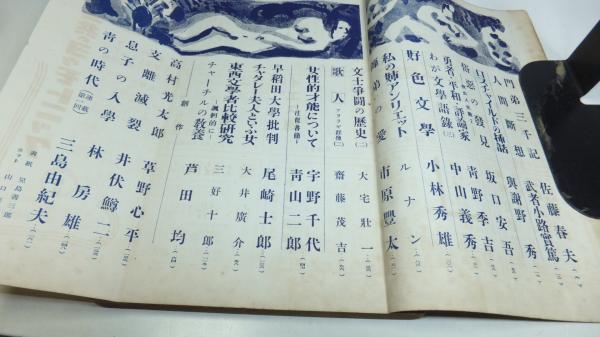 門弟三千記 佐藤春夫
人間断想 武者小路實篤
ロスチャイルドの挿話 與謝野秀
俗惡の發見 坂口安吾
勇者・平和・評論家 青野季吉
わが文學語錄(三) 中山義秀
好色文學 小林秀雄
私の姉アンリエット ルナン
の愛 市原豐太
文士爭鬪の歴史(二) 大宅壯一
歌人 (二) 齋藤茂吉
女性的才能について 宇野千代
―往復書簡― 青山二郎
早稻田大學批判 尾崎士郎
チャタレー夫人といふ女 大井廣介
東西文學者比較研究 三好十郎
チャーチルの教養 芦田均
創作
高村光太郎 草野心平
支離滅裂 井伏鱒二
息子の入學 林房雄
靑の時代 連載第一回 三島由紀夫
表紙 兒島善三郎
カット